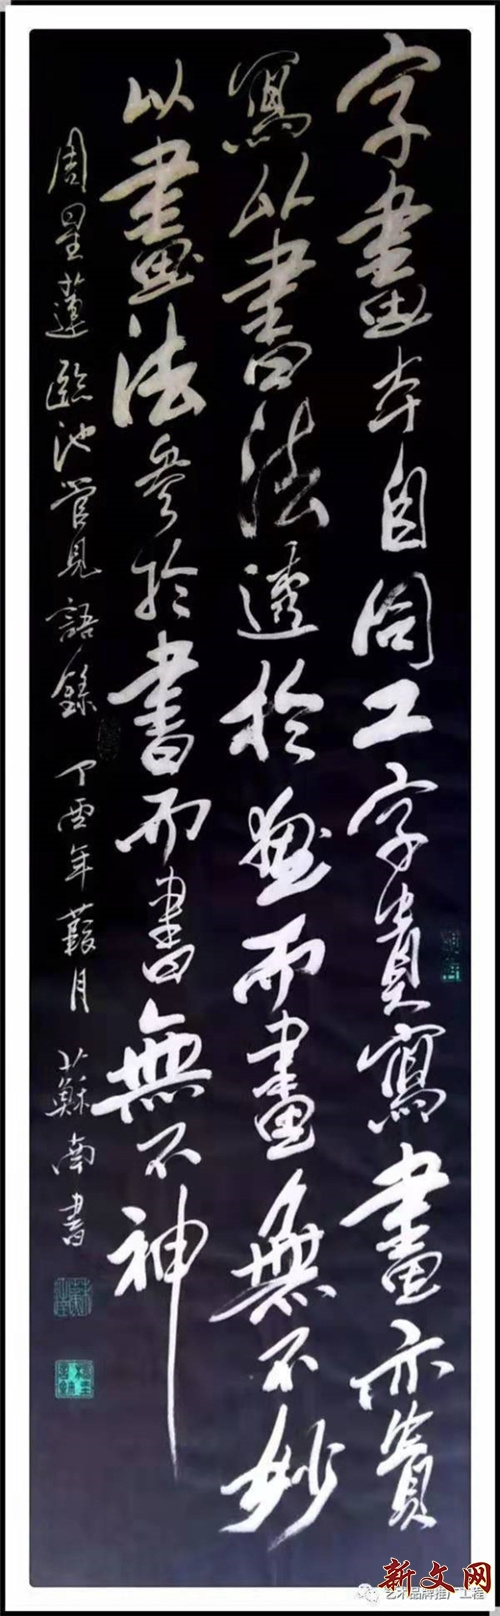 字畫本自同工字貴寫畫亦貴
寫以書法透於畫而畫無不妙
以畫法參於書而書無不神
周星蓮臨池管見語錄 丁酉年葭月 蘇南書
新文网
艺术品牌推广工程